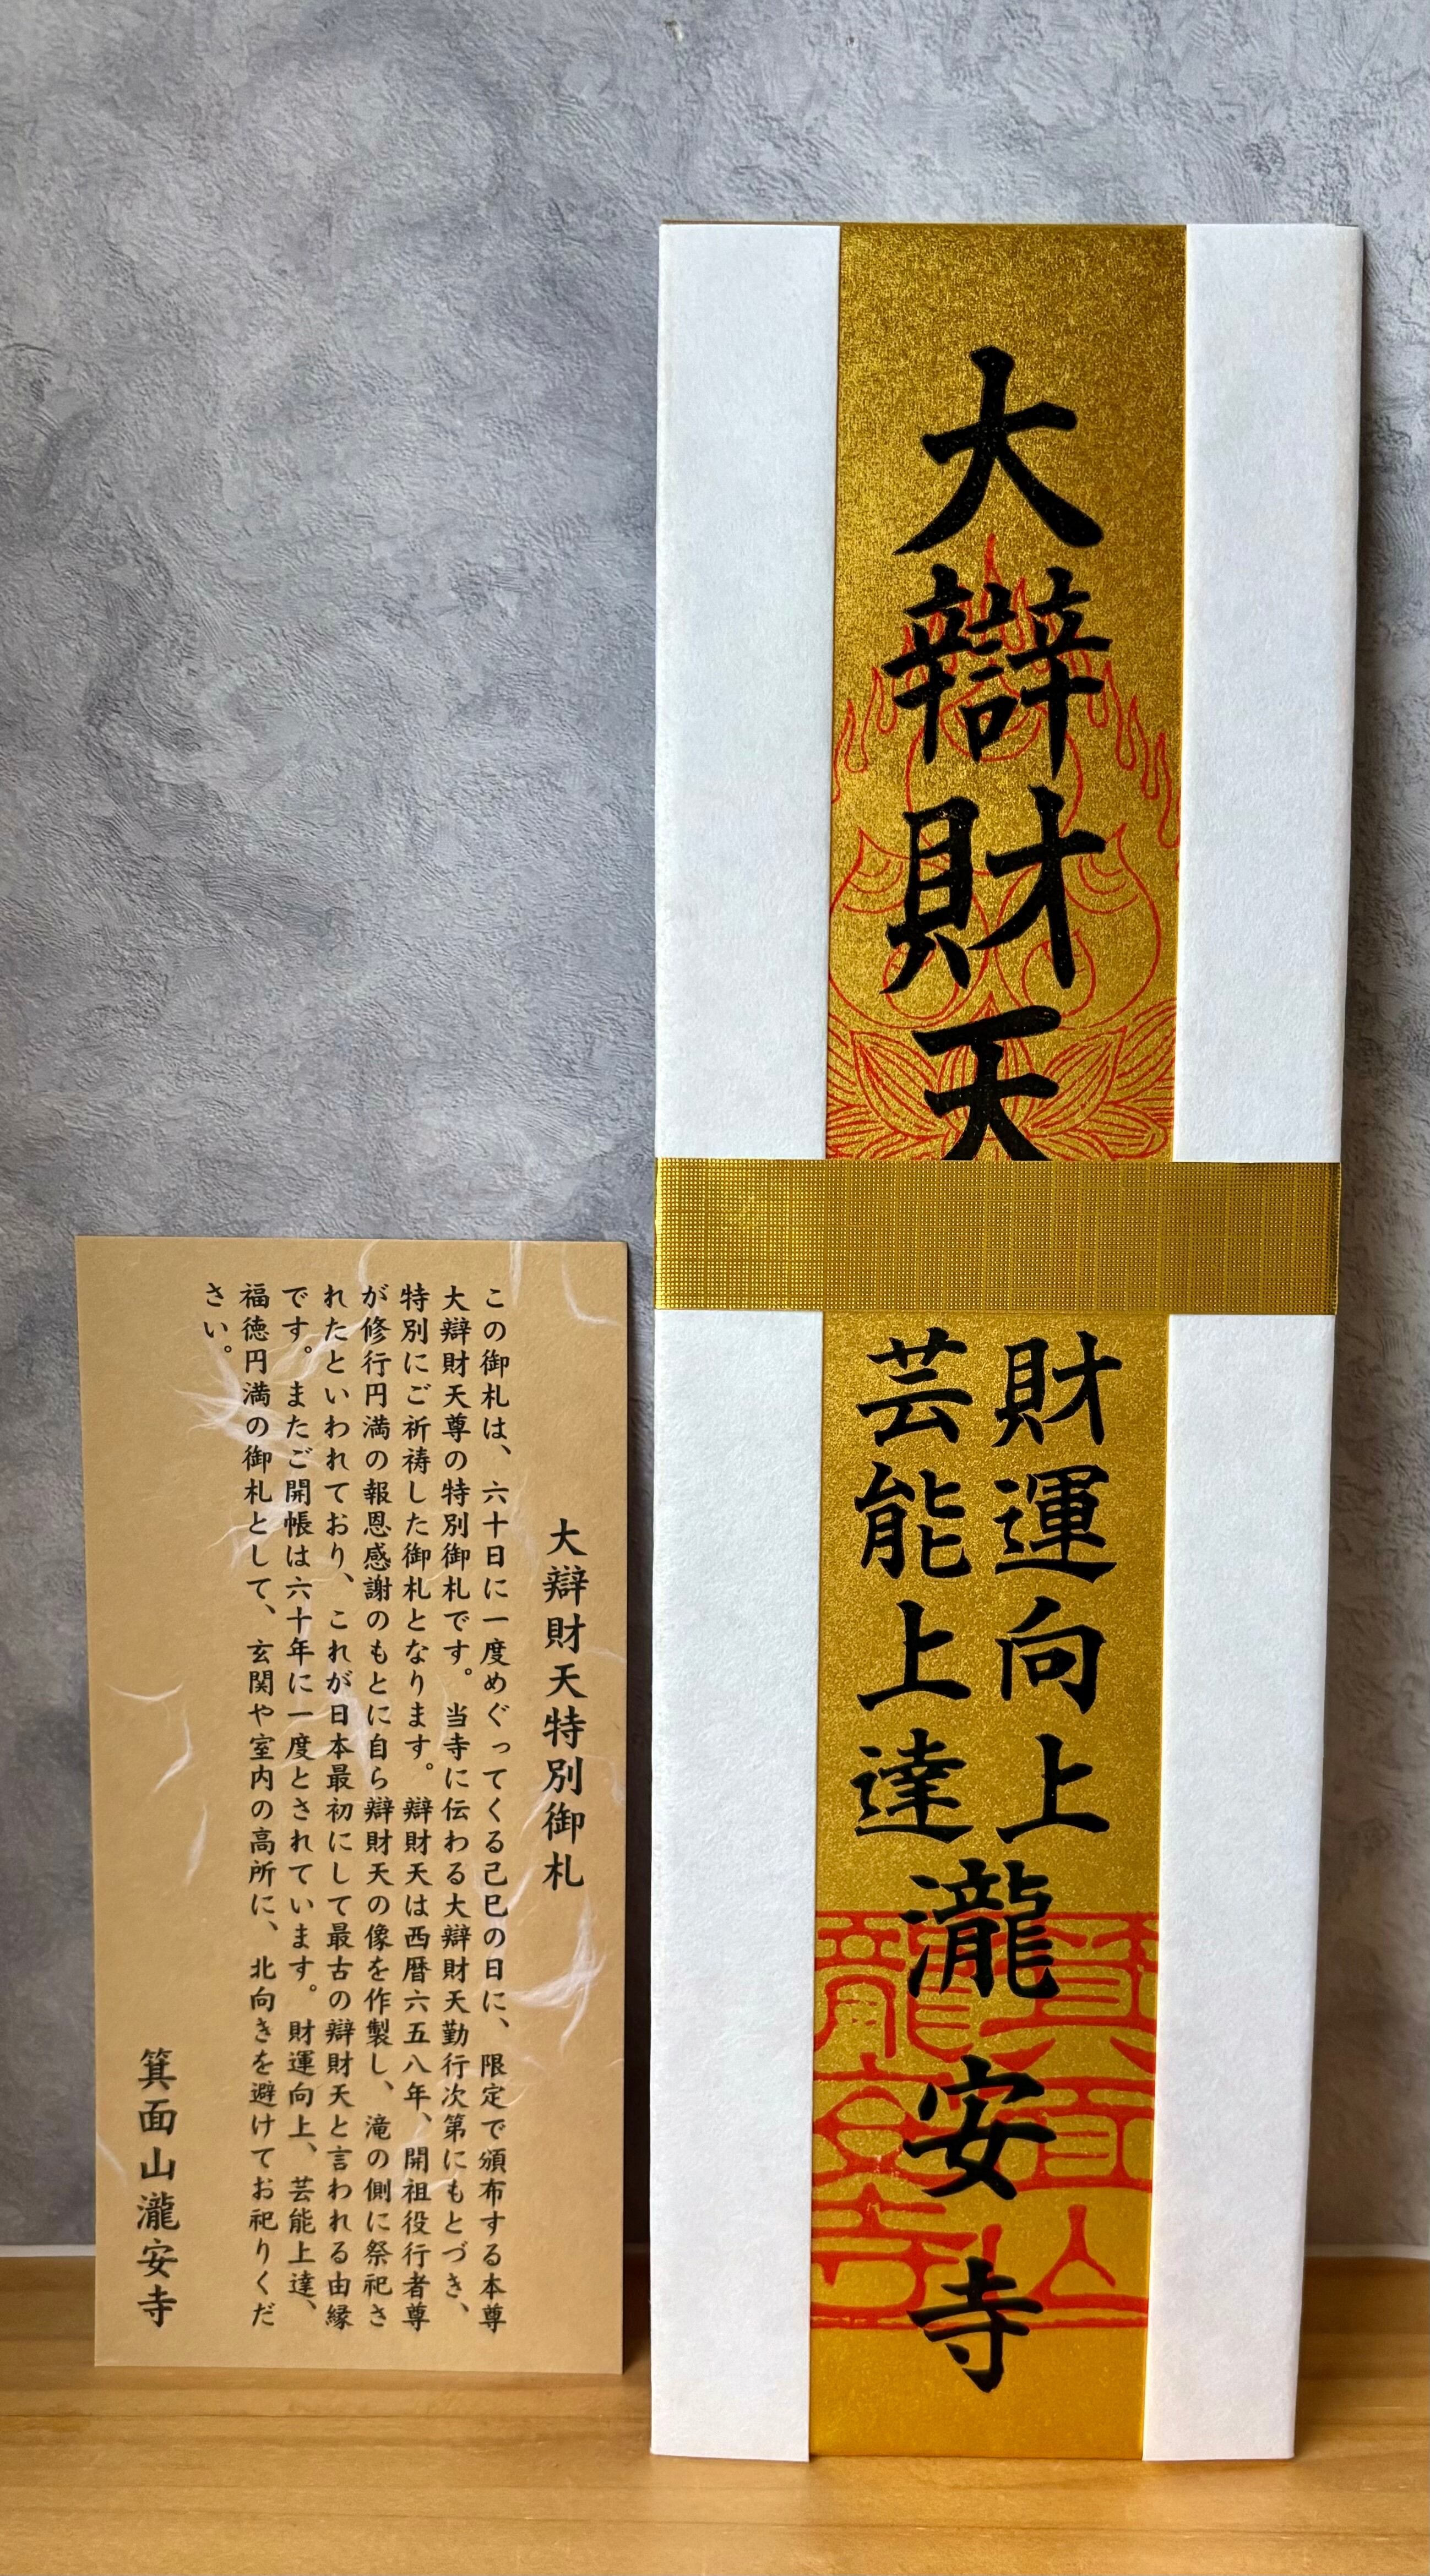 大辯財天
財運向上
芸能上達
瀧安寺
箕面山
瀧安寺
大辯財天特別御札
この御札は、六十日に一度めぐってくる己巳の日に、限定で頒布する本尊
大辯財天尊の特別御札です。当寺に伝わる大辯財天勤行次第にもとづき、
特別にご祈祷した御札となります。辯財天は西暦六五八年、開祖役行者尊
が修行円満の報恩感謝のもとに自ら辯財天の像を作製し、滝の側に祭祀さ
れたといわれており、これが日本最初にして最古の辯財天と言われる由縁
です。またご開帳は六十年に一度とされています。財運向上、芸能上達、
福徳円満の御札として、玄関や室内の高所に、北向きを避けてお祀りくだ
さい。
箕面山瀧安寺